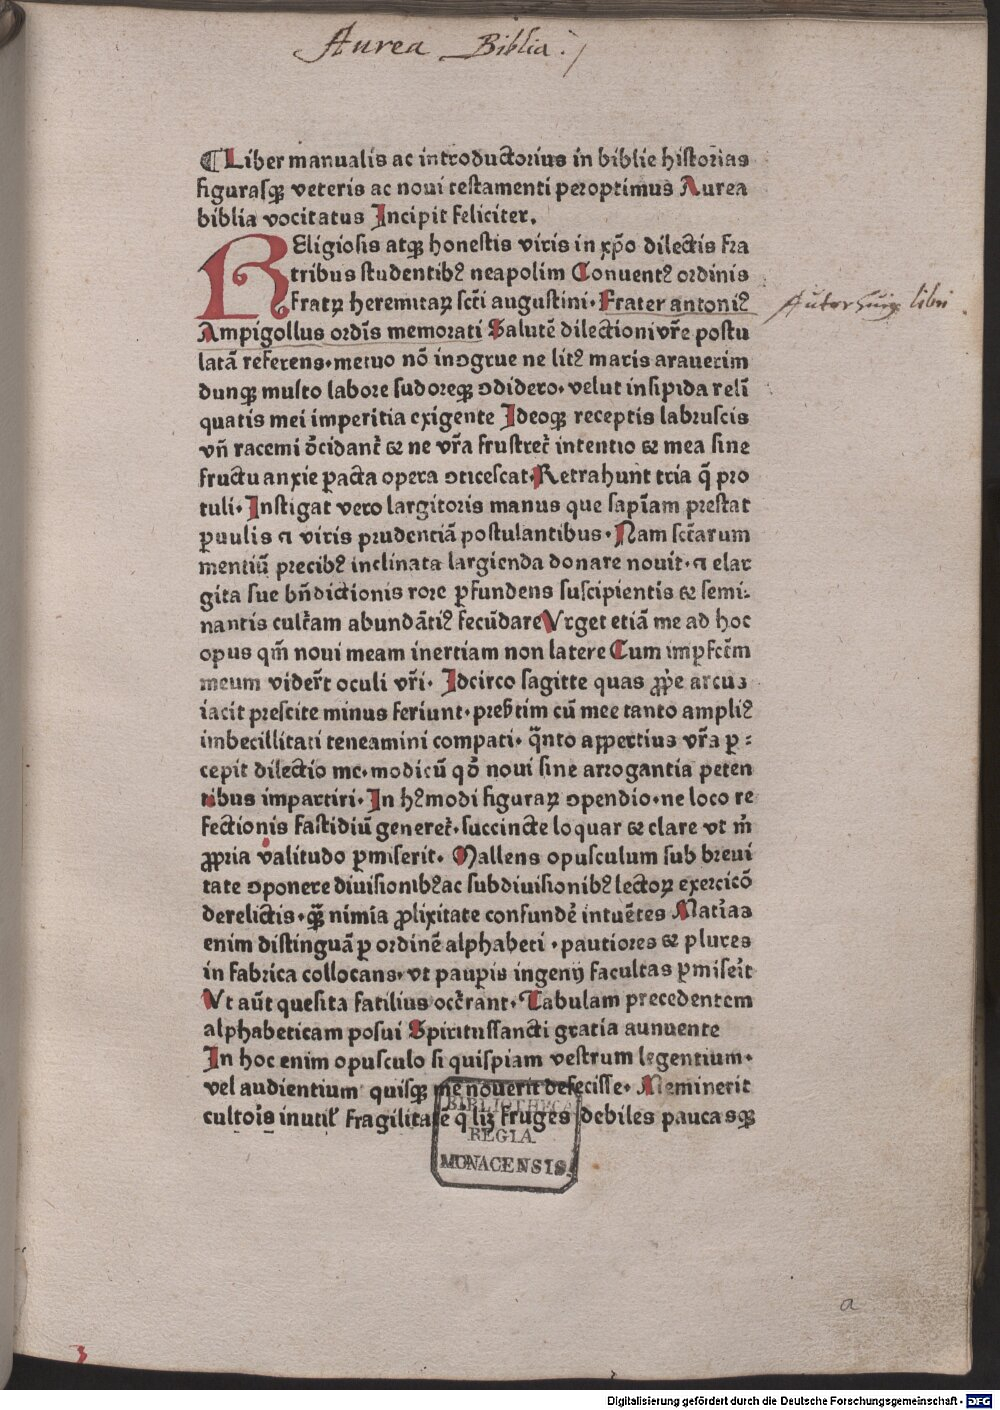 Aurea Biblia
¶ Liber manualis ac introductorius in biblie historias
figurasqꝫ veteris ac noui testamenti peroptimus Aurea
biblia vocitatus Incipit feliciter.
REligiosis atqꝫ honestis viris in xp̄o dilectis fra
tribus studentibꝰ neapolim Conuentꝰ ordinis
fratꝝ heremitaꝝ scti augustini· Frater antoniꝰ
Autor huiꝰ libri
Ampigollus ordis memorati Salutē dilectioni vr̄e postu
latā referens· metuo nō inꝯgrue ne litꝰ maris arauerim
dunqꝫ multo labore sudoreqꝫ ꝯdidero· velut insipida reli
quatis mei imperitia exigente Ideoqꝫ receptis labruscis
vn̄ racemi occidant̄ ⁊ ne vr̄a frustret̄ intentio ⁊ mea sine
fructu anxie ꝑacta opera ꝯticescat· Retrahunt tria q̄ pro
tuli· Instigat vero largitoris manus que sapiam prestat
ꝑuulis a viris prudentiā postulantibus· Nam sctarum
mentiū precibꝰ inclinata largienda donare nouit· a elar
gita sue bn̄dictionis rore ꝑfundens suscipientis ⁊ semi⸗
nantis cult̄am abundātiꝰ fecūdare Vrget etiā me ad hoc
opus qm̄ noui meam inertiam non latere Cum imꝑfctm
meum vider̄t oculi vr̄i· Idcirco sagitte quas ꝓpe arcuꝫ
iacit prescite minus feriunt· presertim cū mee tanto ampliꝰ
imbecillitati teneamini compati· q̄nto aꝑertius vr̄a ꝑ⸗
cepit dilectio me· modicū qd̄ noui sine arrogantia peten
tibus impartiri· In hꝰmodi figuraꝝ ꝯpendio· ne loco re
fectionis fastidiū generet̄· succincte loquar ⁊ clare vt m̄
ꝓpria valitudo ꝑmiserit· Mallens opusculum sub breui
tate ꝯponere diuisionibꝰ ac subdiuisionibꝰ lectoꝝ exercicō
derelictis· qꝫ̄ nimia ꝓlixitate confundē intuētes Matias
enim distinguā ꝑ ordinē alphabeti· pautiores ⁊ plures
in fabrica collocans· vt pauꝑis ingenij facultas ꝑmiserit
Vt aut̄ quesita fatilius occr̄rant· Tabulam precedentem
alphabeticam posui Spiritussancti gratia annuente
In hoc enim opusculo si quispiam vestrum legentium·
vel audientium quisqꝫ me nouerit defecisse· Meminerit
cultoris inutil̄ fragilitatē q̄ lꝫ fruges debiles paucasqꝫ
BIBLIOTHECA
REGIA
MONACENSIS
a
Digitalisierung gefördert durch die Deutsche Forschungsgemeinschaft - DFG